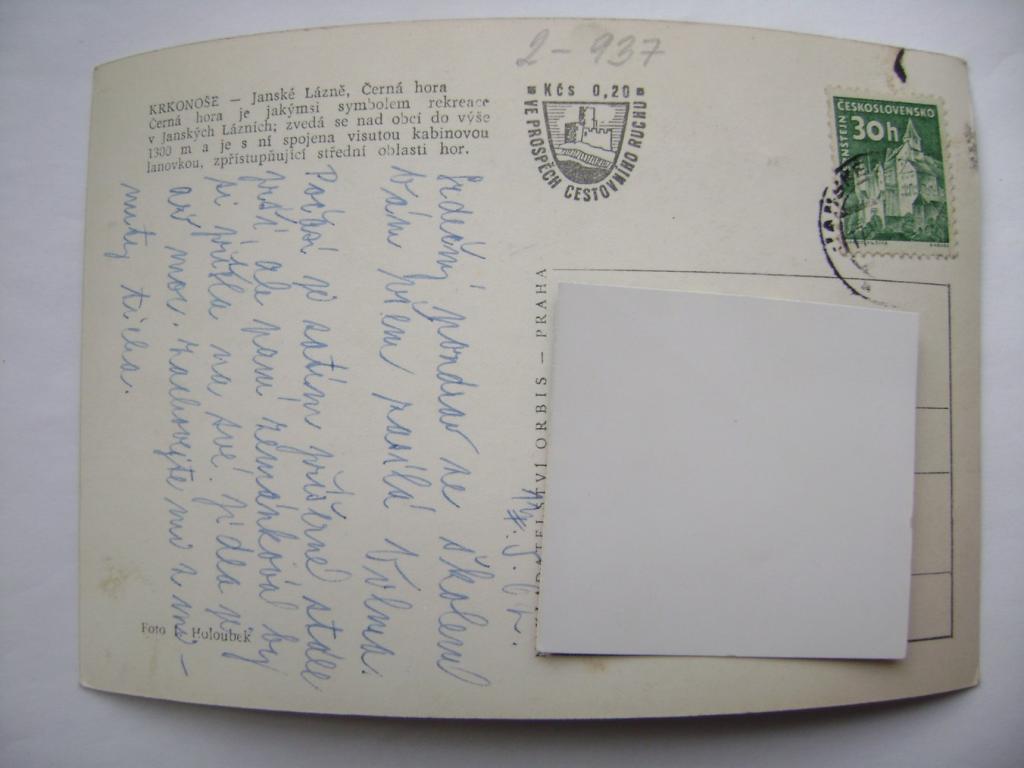 2-937
KRKONOŠE — Janské Lázně, Černá hora
Černá hora je jakýmsi symbolem rekreace
v Janských Lázních; zvedá se nad obcí do výše
1300 m a je s ní spojena visutou kabinovou
lanovkou, zpřístupňující střední oblasti hor.
Kčs 0,20
VE PROSPĚCH CESTOVNÍHO RUCHU
ČESKOSLOVENSKO
30h
ORBIS — PRAHA
Srdečný pozdrav ze školení
Vám všem posílá Vilma.
Počasí je zatím příšerné stále
prší, ale paní Zemánková by
si přišla na své. Jídla je
až moc. Zachovejte mi 2 mi-
nuty ticha.
Foto Holoubek